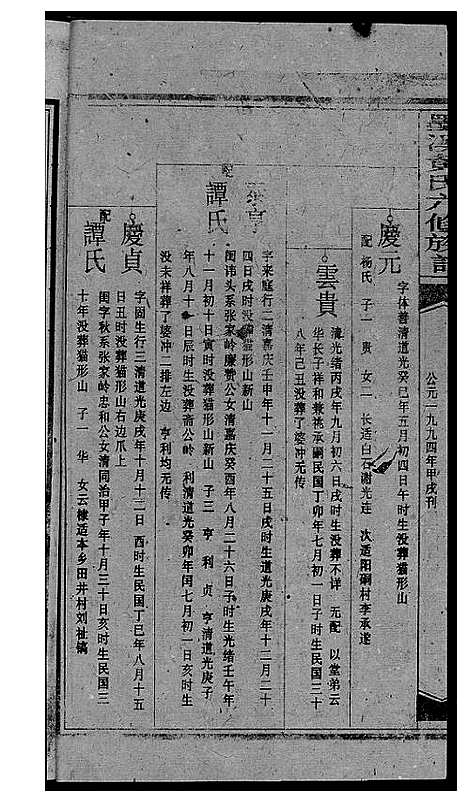 墨溪彭氏六修族譜
公元一九九四年甲戌刊
慶元
字体善清道光癸巳年五月初四日午时生没葬猫形山
配 杨氏 子一 贵 女二 长适白石谢光连 次适阳嗣村李承遂
雲貴
清光绪丙戌年九月初六日戌时生没葬不详 无配 以堂弟云
华长子祥和兼祧承嗣民国丁卯年七月初一日子时生民国三十
八年己丑没葬了婆冲无传
亨
字来庭行二清嘉庆壬申年十一月二十五日戌时生道光庚戌年十二月二十
四日戌时没葬猫形山新山
配
譚氏
闺讳头系张家岭赓赞公女清嘉庆癸酉年八月二十六日子时生光绪壬午年
十一月初十日寅时没葬猫形山新山 子三 亨 利 贞 亨清道光庚子
年八月十一日辰时生没葬斋公岭 利清道光癸卯年闰七月初一日亥时生
没未祥葬了婆冲二排左边 亨利均无传
慶貞
字固生行三清道光庚戌年十月十三日 酉时生民国丁巳年八月十五
日丑时没葬猫形山右边爪上
配
譚氏
闺字秋系张家岭忠和公女清同治甲子年十月三十日亥时生民国三
十年没葬猫形山 子一 华 女云棣适本乡田井村刘祉镐